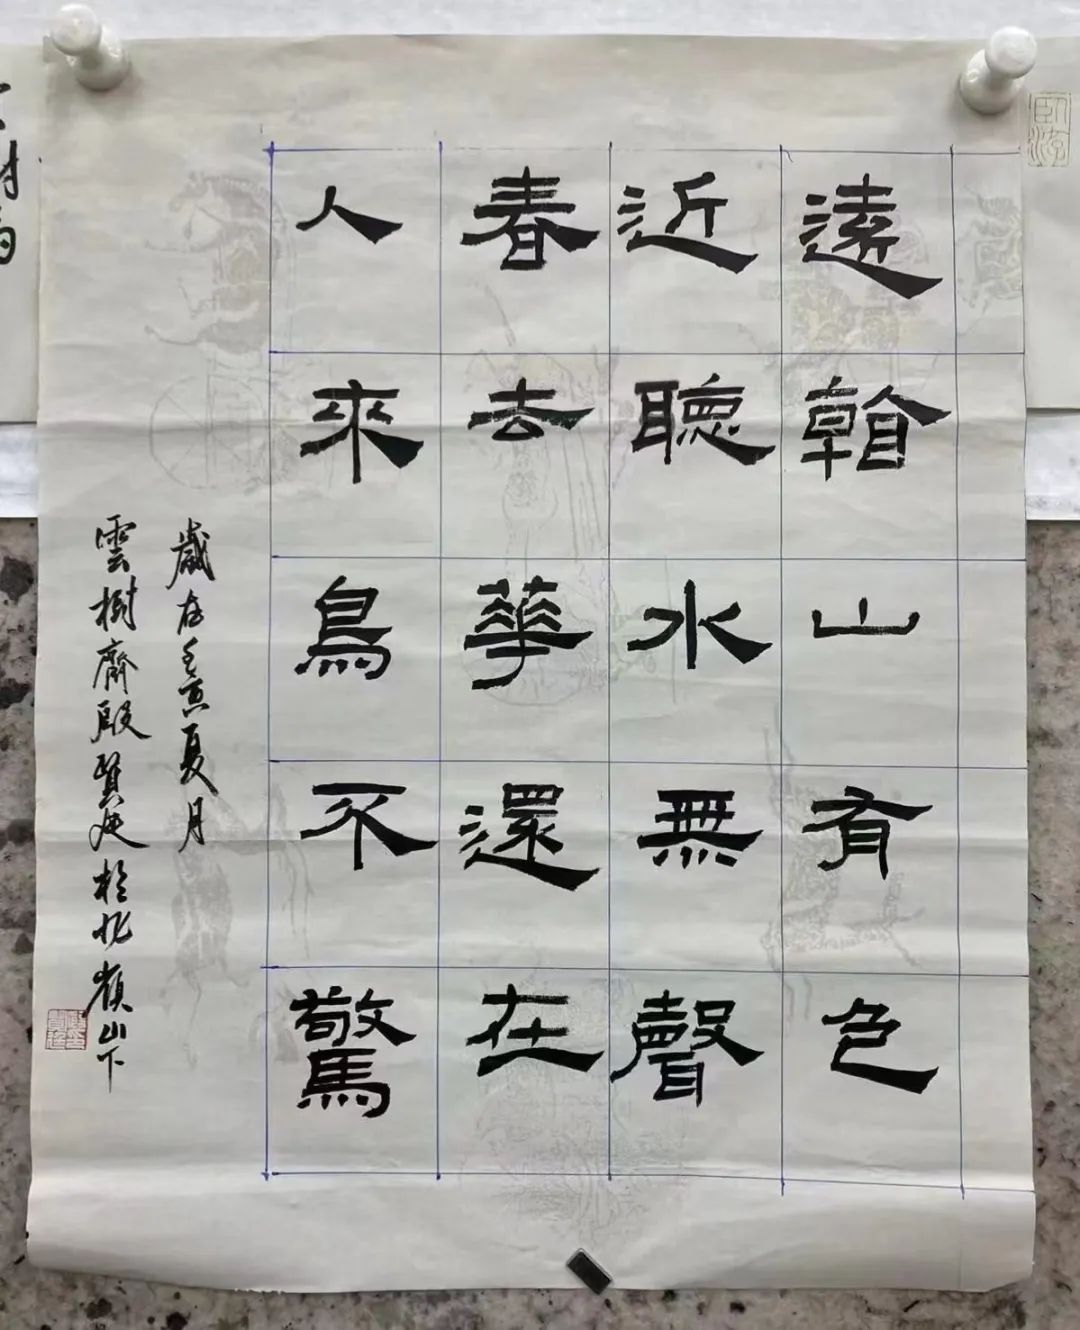 遠看山有色
近聽水無聲
春去華還在
人來鳥不驚
歲在壬寅夏月
雲樹齋殷賢於嶺山下